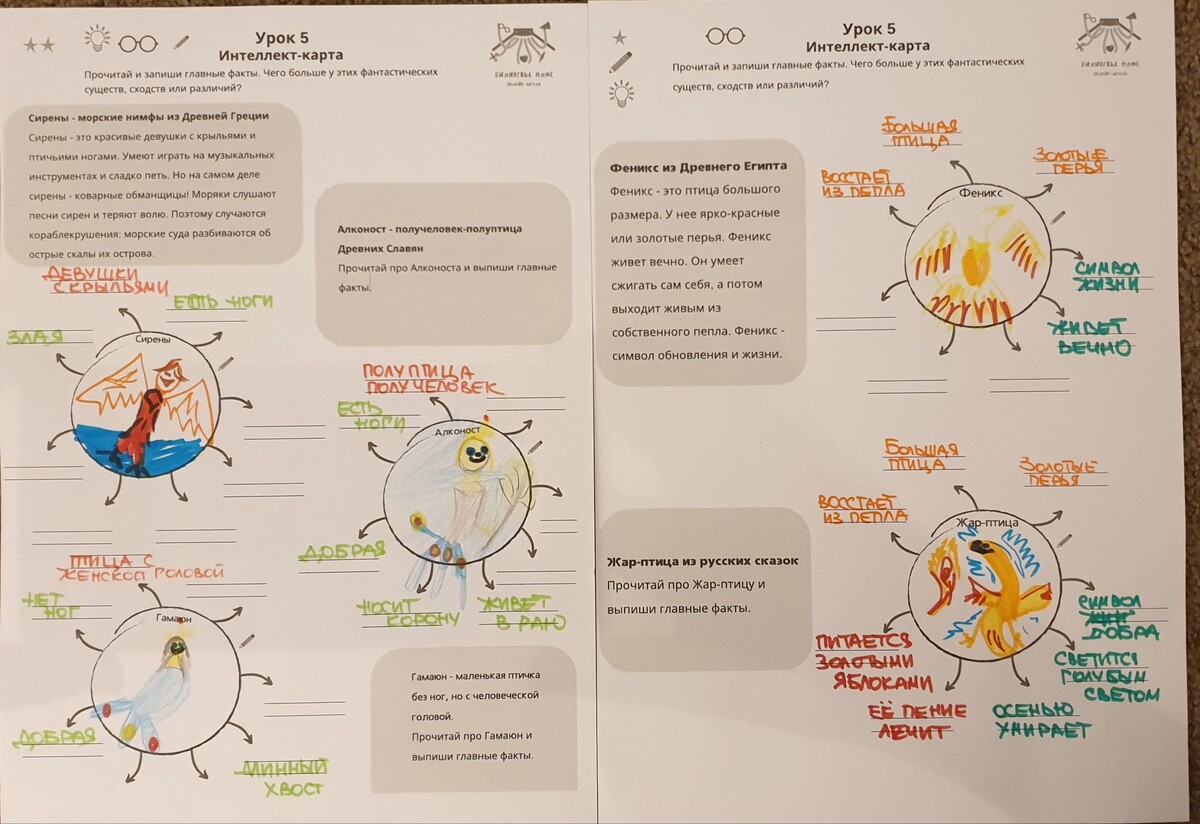 Урок 5
Интеллект-карта
Прочитай и запиши главные факты. Чего больше у этих фантастических
существ, сходств или различий?
БИЛИНГВЫ ПЛЮС
ОНЛАЙН-ШКОЛА
Сирены - морские нимфы из Древней Греции
Сирены - это красивые девушки с крыльями и
птичьими ногами. Умеют играть на музыкальных
инструментах и сладко петь. Но на самом деле
сирены - коварные обманщицы! Моряки слушают
песни сирен и теряют волю. Поэтому случаются
кораблекрушения: морские суда разбиваются об
острые скалы их острова.
Алконост - получеловек-полуптица
Древних Славян
Прочитай про Алконоста и выпиши главные
факты.
ДЕВУШКИ
С КРЫЛЬЯМИ
ЕСТЬ НОГИ
ЗЛАЯ
Сирены
ПОЛУПТИЦА
ПОЛУЧЕЛОВЕК
ЕСТЬ
НОГИ
Алконост
ДОБРАЯ
НОСИТ
КОРОНУ
ЖИВЕТ
В РАЮ
ПТИЦА С
ЖЕНСКОЙ ГОЛОВОЙ
НЕТ
НОГ
Гамаюн
ДОБРАЯ
ДЛИННЫЙ
ХВОСТ
Гамаюн - маленькая птичка
без ног, но с человеческой
головой.
Прочитай про Гамаюн и
выпиши главные факты.
Урок 5
Интеллект-карта
Прочитай и запиши главные факты. Чего больше у этих фантастических
существ, сходств или различий?
БИЛИНГВЫ ПЛЮС
ОНЛАЙН-ШКОЛА
Феникс из Древнего Египта
Феникс - это птица большого
размера. У нее ярко-красные
или золотые перья. Феникс
живет вечно. Он умеет
сжигать сам себя, а потом
выходит живым из
собственного пепла. Феникс -
символ обновления и жизни.
БОЛЬШАЯ
ПТИЦА
ЗОЛОТЫЕ
ПЕРЬЯ
ВОССТАЕТ
ИЗ ПЕПЛА
Феникс
СИМВОЛ
ЖИЗНИ
ЖИВЕТ
ВЕЧНО
Жар-птица из русских сказок
Прочитай про Жар-птицу и
выпиши главные факты.
БОЛЬШАЯ
ПТИЦА
ЗОЛОТЫЕ
ПЕРЬЯ
ВОССТАЕТ
ИЗ ПЕПЛА
Жар-птица
СИМВОЛ
ДОБРА
СВЕТИТСЯ
ГОЛУБЫМ
СВЕТОМ
ПИТАЕТСЯ
ЗОЛОТЫМИ
ЯБЛОКАМИ
ЕЁ ПЕНИЕ
ЛЕЧИТ
ОСЕНЬЮ
УМИРАЕТ